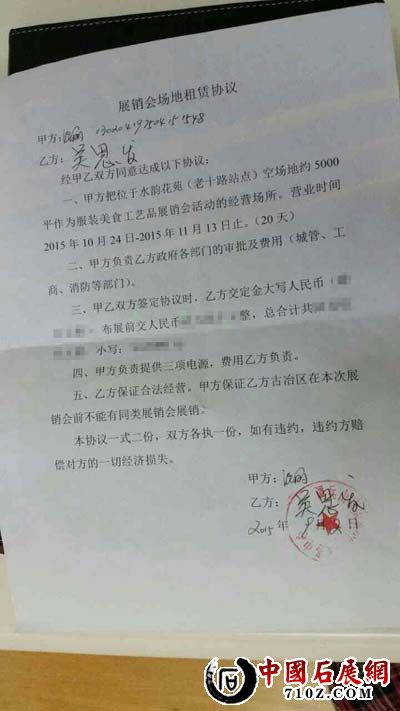 展销会场地租赁协议
甲方:
乙方:吴思发
经甲乙双方同意达成以下协议:
一、甲方把位于水韵花苑(老十路站点)空场地约 5000
平作为服装美食工艺品展销会活动的经营场所。营业时间
2015 年 10 月 24 日-2015 年 11 月 13 日止。(20 天)
二、甲方负责乙方政府各部门的审批及费用(城管、工
商、消防等部门)。
三、甲乙双方签定协议时,乙方交定金大写人民币(
布展前交人民币 整,总合计共
小写:
四、甲方负责提供三项电源,费用乙方负责。
五、乙方保证合法经营。甲方保证乙方古冶区在本次展
销会前不能有同类展销会展销。
本协议一式二份,双方各执一份,如有违约,违约方赔
偿对方的一切经济损失。
甲方:
乙方:吴思发
2015 年 日
中國石展網
710Z.COM